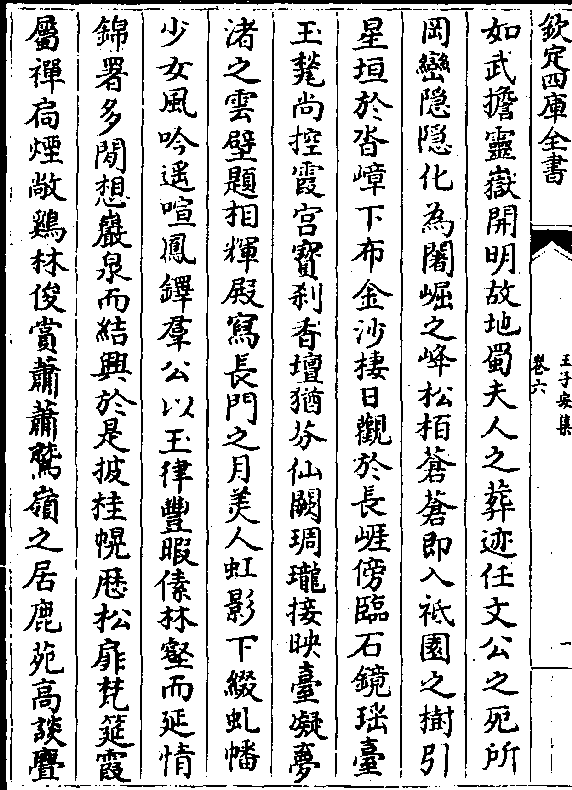 欽定四庫全書
王子安集
卷六
一
如武擔靈嶽開明故地蜀夫人之葬迹任文公之死所
岡巒隱隱化為闍崛之峰松栢蒼蒼即入祇園之樹引
星垣於沓嶂下布金沙棲日觀於長崖傍臨石鏡瑶臺
玉甃尚控霞宫寳刹香壇猶芬仙闕琱瓏接映臺凝夢
渚之雲壁題相輝殿寫長門之月美人虹影下綴虬幡
少女風吟遥喧鳳鐸羣公以玉律豐暇傃林壑而延情
錦署多閒想巖泉而結興於是披桂幌歴松扉梵筵霞
屬禪扃煙敞鷄林俊賞蕭蕭鷲嶺之居鹿苑高談亹